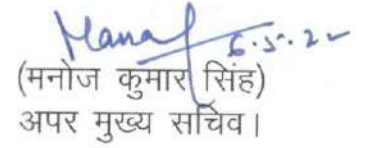 6.5.22
(मनोज कुमार सिंह)
अपर मुख्य सचिव।